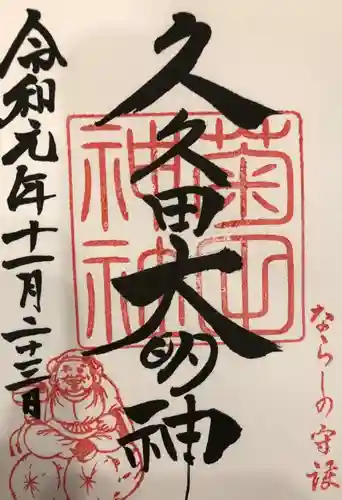 久久田大明神
菊田神社
ならしの守護
令和元年十一月二十三日